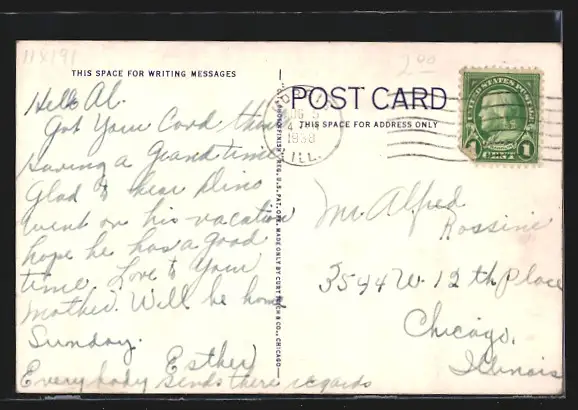 11X191
2 00
THIS SPACE FOR WRITING MESSAGES
POST CARD
THIS SPACE FOR ADDRESS ONLY
Hello Al.
Got Your Card
Having a grand time
Glad to hear Dino
went on his vacation
hope he has a good
time. Love to Your
Mother. Will be home
Sunday.
Esther
Everybody sends there regards
AUG 5
4
1938
ILL.
UNITED STATES POSTAGE
1 CENT 1
REG. U.S. PAT. OFF. MADE ONLY BY CURT TEICH & CO., CHICAGO
Mr. Alfred
Rossini
3544 W. 12th Place
Chicago,
Illinois